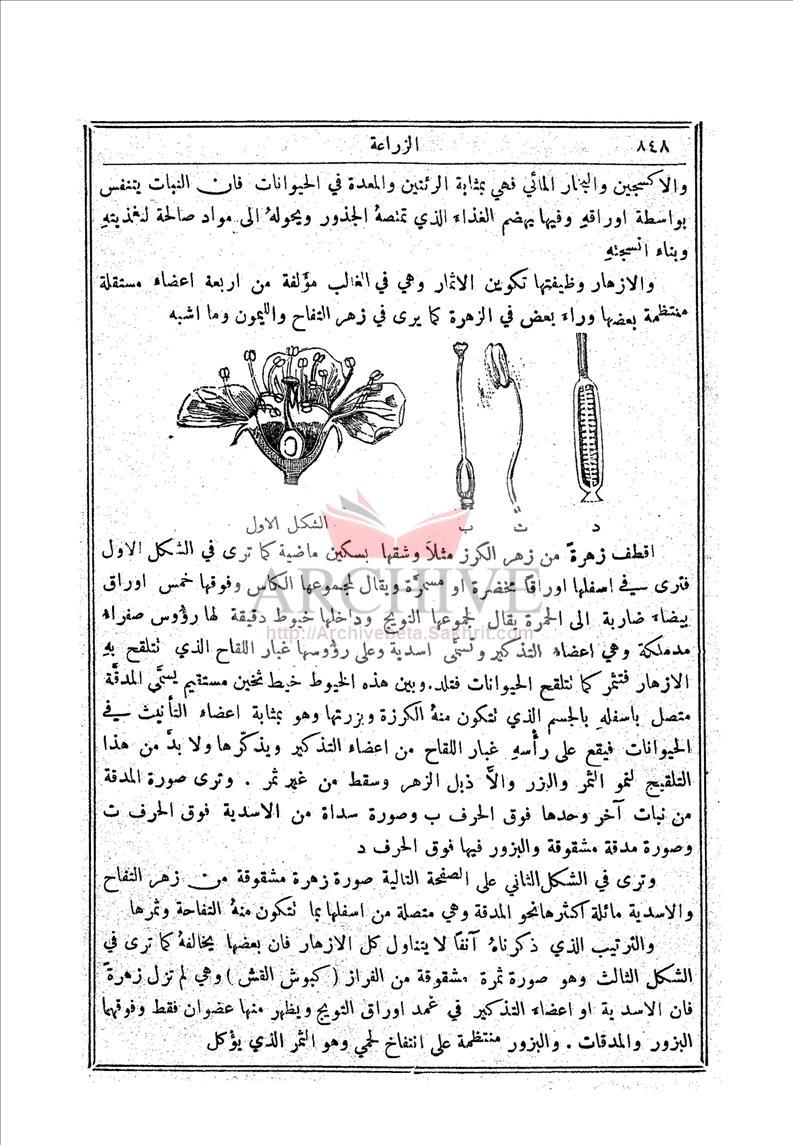 ٨٤٨
الزراعة
والاكسجين والبخار المائي فهي بمثابة الرئتين والمعدة في الحيوانات فان النبات يتنفس
بواسطة اوراقهِ وفيها يهضم الغذاء الذي تمتصهُ الجذور ويحولهُ الى مواد صالحة لتغذيتهِ
وبناء انسجتهِ
والازهار وظيفتها تكوين الاثمار وهي في الغالب مؤلفة من اربعة اعضاء مستقلة
منتظمة بعضها وراء بعض في الزهرة كما يرى في زهر التفاح والليمون وما اشبه
الشكل الاول
ب
ت
د
اقطف زهرةً من زهر الكرز مثلاً وشقها بسكين ماضية كما ترى في الشكل الاول
فترى في اسفلها اوراقًا مخضرة او مسمرَّة ويقال لمجموعها الكاس وفوقها خمس اوراق
بيضاء ضاربة الى الحمرة يقال لمجموعها التويج وداخلها خيوط دقيقة لها رؤوس صفراء
مدملكة وهي اعضاء التذكير وتسمَّى اسدية وعلى رؤوسها غبار اللقاح الذي تتلقح بهِ
الازهار فتثمر كما تتلقح الحيوانات فتلد. وبين هذه الخيوط خيط ثخين مستقيم يسمَّى المدقَّة
متصل باسفلهِ بالجسم الذي تتكون منهُ الكرزة وبزرتها وهو بمثابة اعضاء التأنيث في
الحيوانات فيقع على رأْسهِ غبار اللقاح من اعضاء التذكير ويذكّرها ولا بدَّ من هذا
التلقيح لنمو الثمر والبزر والاَّ ذبل الزهر وسقط من غير ثمر . وترى صورة المدقة
من نبات آخر وحدها فوق الحرف ب وصورة سداة من الاسدية فوق الحرف ت
وصورة مدقة مشقوقة والبزور فيها فوق الحرف د
وترى في الشكل الثاني على الصفحة التالية صورة زهرة مشقوقة من زهر التفاح
والاسدية مائلة اكثرها نحو المدقة وهي متصلة من اسفلها بما تتكون منهُ التفاحة وثمرها
والترتيب الذي ذكرناهُ آنفًا لا يتناول كل الازهار فان بعضها يخالفهُ كما ترى في
الشكل الثالث وهو صورة ثمرة مشقوقة من الفراز ( كبوش القش ) وهي لم تزل زهرةً
فان الاسدية او اعضاء التذكير في غمد اوراق التويج ويظهر منها عضوان فقط وفوقهما
البزور والمدقات . والبزور منتظمة على انتفاخ لحمي وهو الثمر الذي يؤكل
ARCHIVE
http://Archivebeta.Sakhrit.com